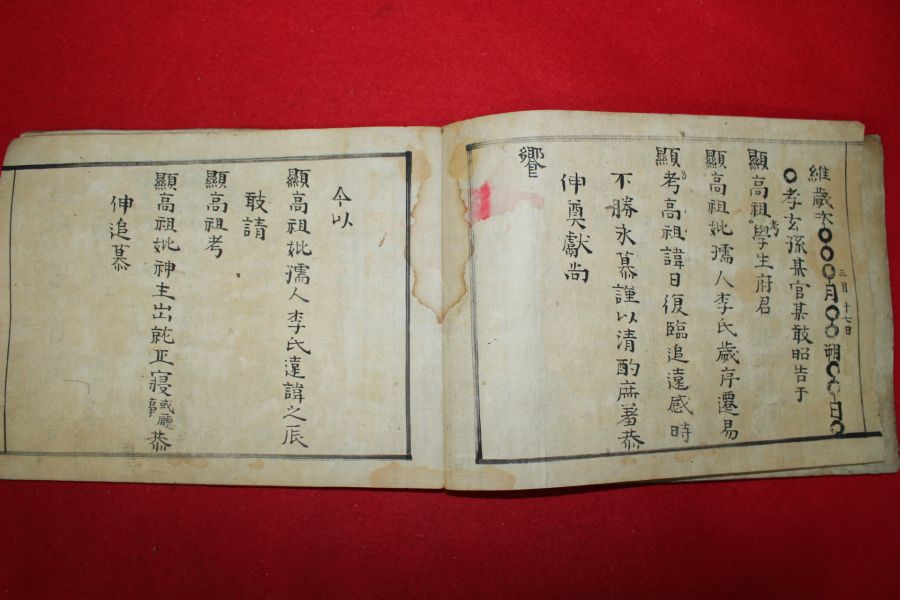 維歲次〇〇〇月〇〇朔〇〇日〇
三月 十七日
〇孝玄孫某官某敢昭告于
顯高祖考學生府君
顯高祖妣孺人李氏歲序遷易
顯考高祖諱日復臨追遠感時
不勝永慕謹以清酌庶羞恭
伸奠獻尚
饗
今以
顯高祖妣孺人李氏遠諱之辰
敢請
顯高祖考
顯高祖妣神主出就正寢或廳事恭
伸追慕